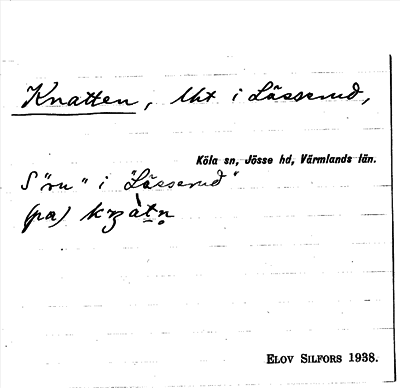 Knatten, lht i Lässerud,
Köla sn, Jösse hd, Värmlands län.
S "ru" i "Lässerud"
(pa)
ELOV SILFORS 1938.